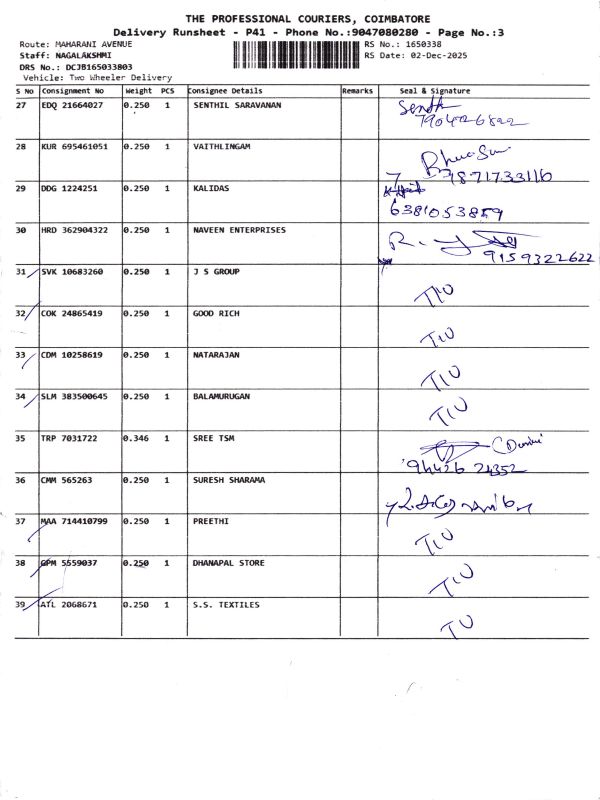 THE PROFESSIONAL COURIERS, COIMBATORE
Delivery Runsheet - P41 - Phone No.:9047080280 - Page No.:3
Route: MAHARANI AVENUE RS No.: 1650338
Staff: NAGALAKSHMI RS Date: 02-Dec-2025
DRS No.: DCJB165033803
Vehicle: Two Wheeler Delivery
S No Consignment No Weight PCS Consignee Details Remarks Seal & Signature
27 EDQ 21664027 0.250 1 SENTHIL SARAVANAN
28 KUR 695461051 0.250 1 VAITHLINGAM
9871733116
29 DDG 1224251 0.250 1 KALIDAS
6381053859
30 HRD 362904322 0.250 1 NAVEEN ENTERPRISES
9159322622
31 SVK 10683260 0.250 1 J S GROUP
32 COK 24865419 0.250 1 GOOD RICH
33 CDM 10258619 0.250 1 NATARAJAN
34 SLM 383500645 0.250 1 BALAMURUGAN
35 TRP 7031722 0.346 1 SREE TSM
94426 24352
36 CMM 565263 0.250 1 SURESH SHARAMA
37 MAA 714410799 0.250 1 PREETHI
38 GPM 5559037 0.250 1 DHANAPAL STORE
39 ATL 2068671 0.250 1 S.S. TEXTILES